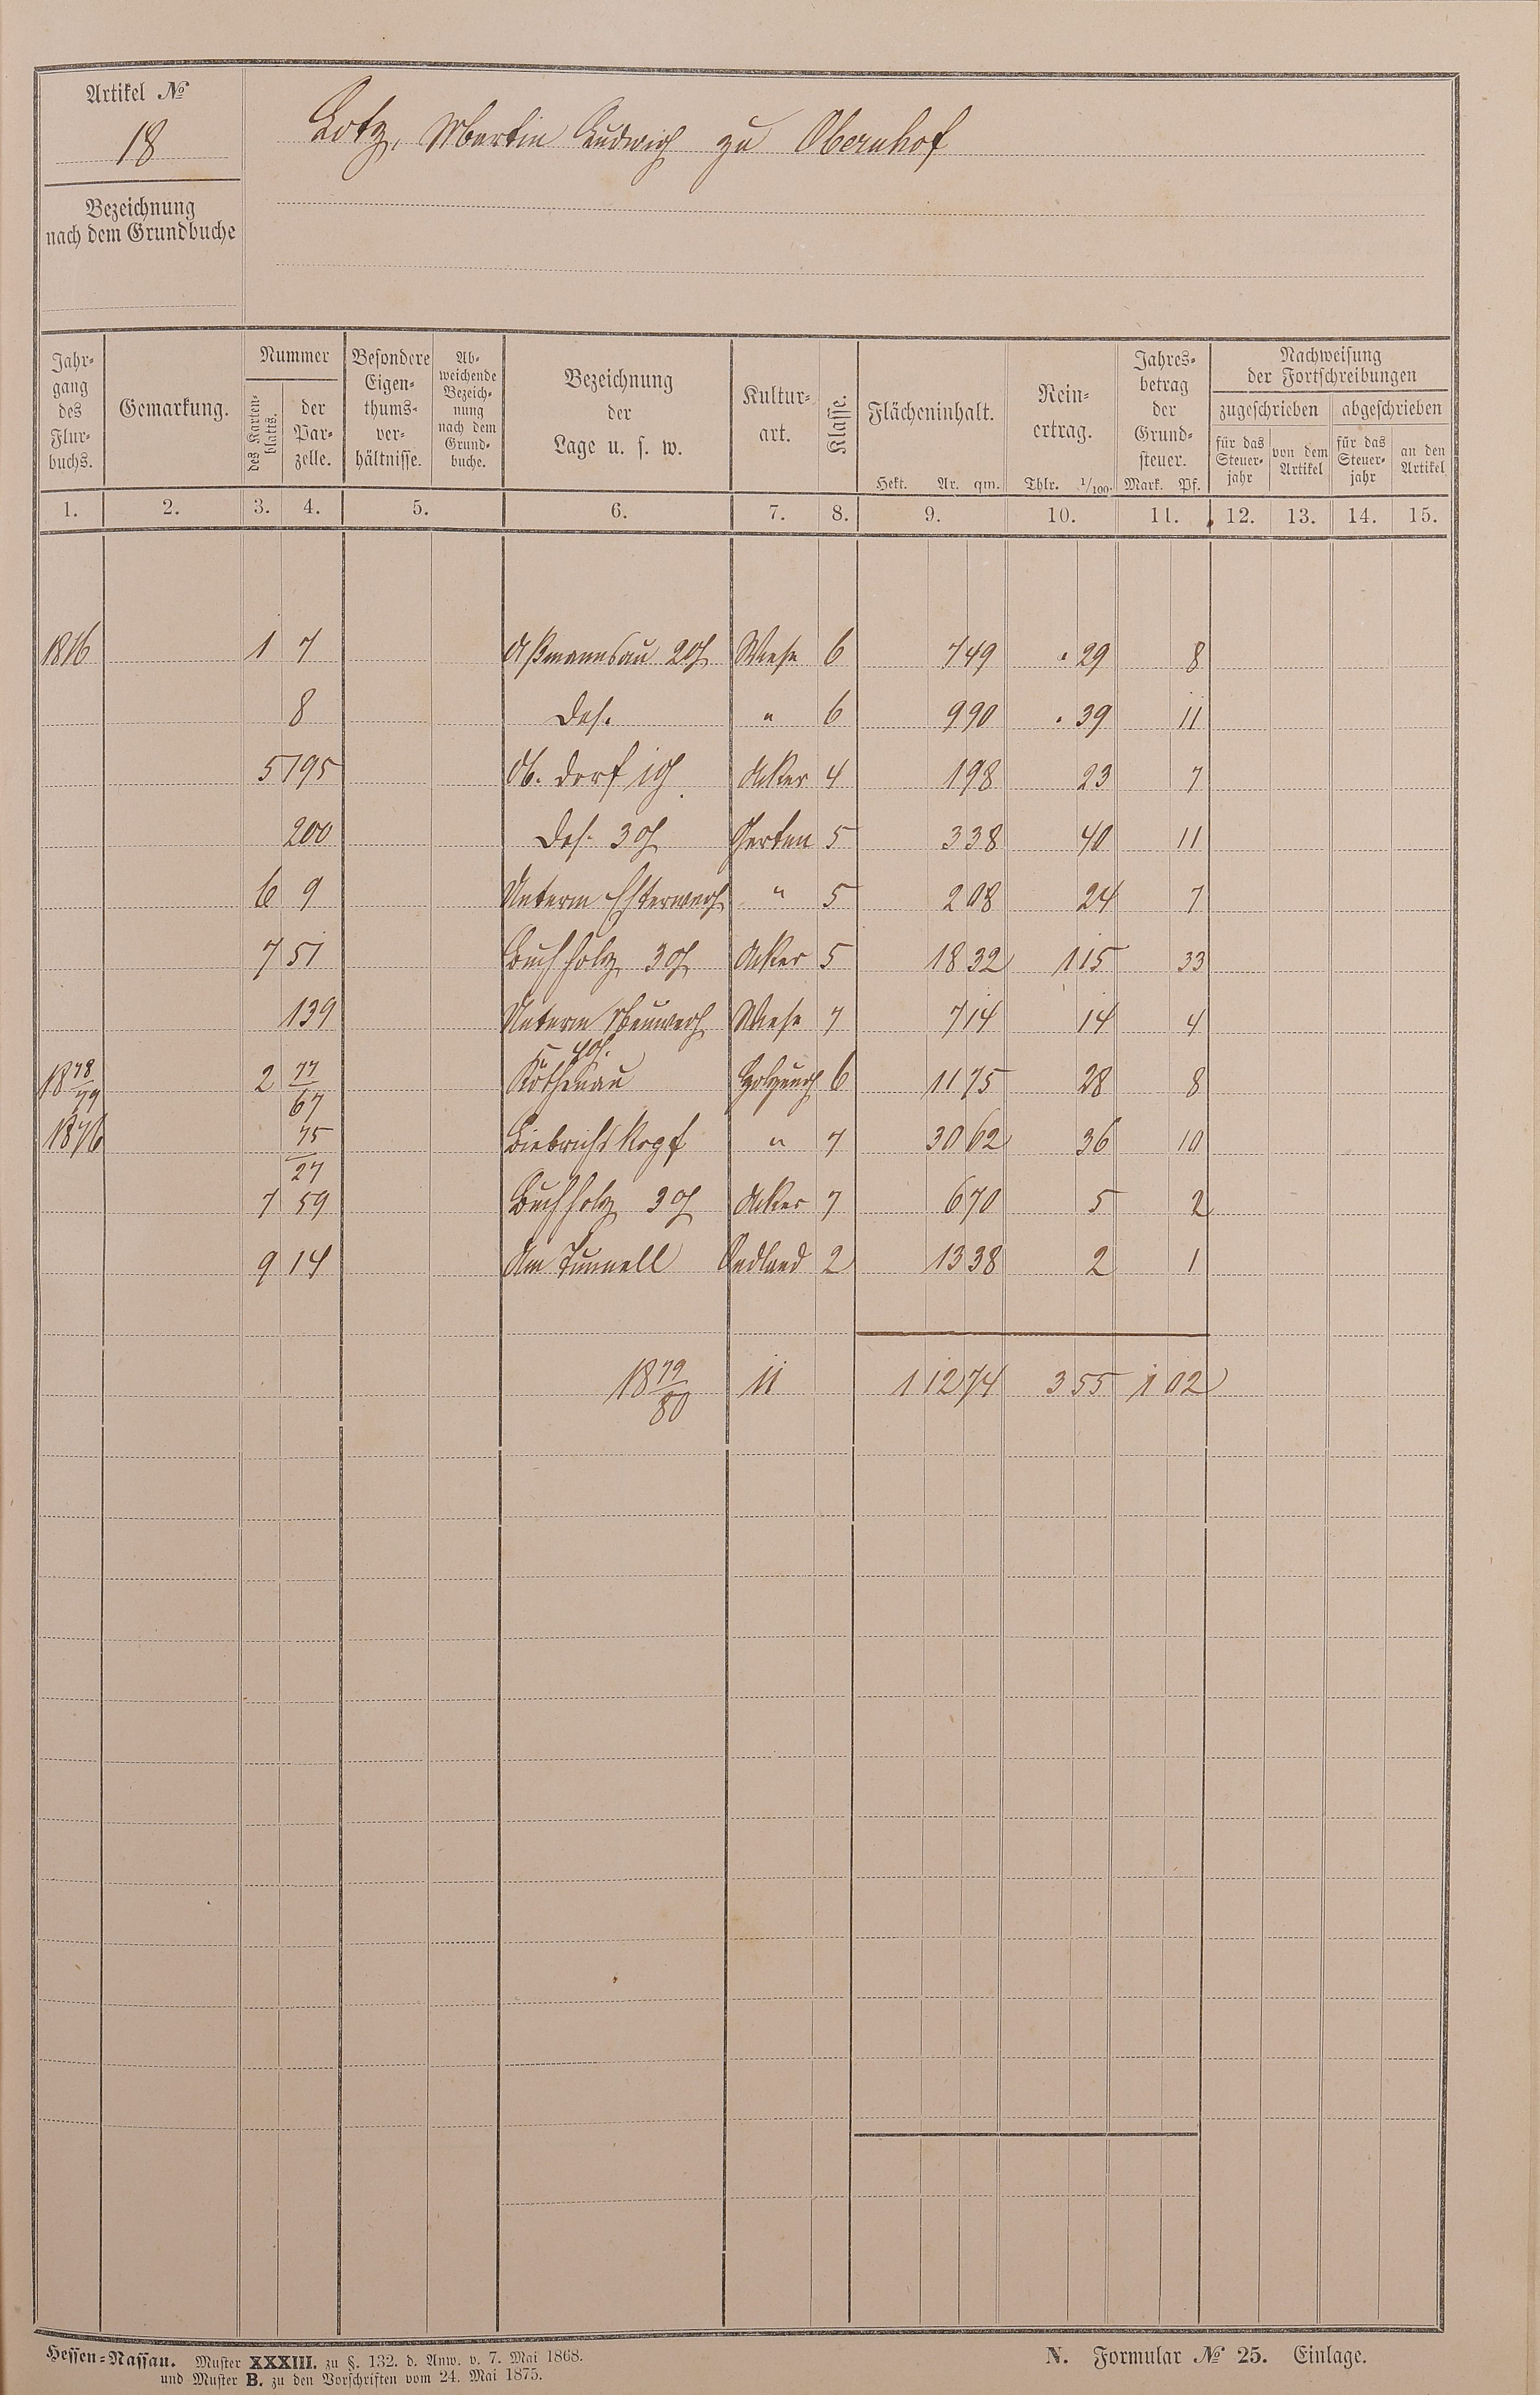 Artikel №
18
Lotz, Martin Ludwig zu Obernhof
Bezeichnung
nach dem Grundbuche
Jahr-
gang
des
Flur-
buchs.
Gemarkung.
Nummer
des Karten-
blatts.
der
Par-
zelle.
Besondere
Eigen-
thums-
ver-
hältnisse.
Ab-
weichende
Bezeich-
nung
nach dem
Grund-
buche.
Bezeichnung
der
Lage u. s. w.
Kultur-
art.
Klasse.
Flächeninhalt.
Hekt. Ar. qm.
Rein-
ertrag.
Thlr. 1/100.
Jahres-
betrag
der
Grund-
steuer.
Mark. Pf.
Nachweisung
der Fortschreibungen
zugeschrieben abgeschrieben
für das
Steuer-
jahr
von dem
Artikel
für das
Steuer-
jahr
an den
Artikel
1. 2. 3. 4. 5. 6. 7. 8. 9. 10. 11. 12. 13. 14. 15.
1876 1 7 Aßmannsau 2 Wiese 6 7 49 . 29 8
8 das. " 6 9 90 . 39 11
5 195 Ob. Dorf 1 Acker 4 1 98 23 7
200 Das. 3 Garten 5 3 38 40 11
6 9 Unterm " 5 2 08 24 7
7 51 Buchholz 3 Acker 5 18 32 1 15 33
139 Unterm Wiese 7 7 14 14 4
1878/79 2 77/67 Holzung 6 11 75 28 8
1876 75/27 Kopf " 7 30 62 36 10
7 59 Buchholz 3 Acker 7 6 70 5 2
9 14 Am Tunnell Oedland 2 13 38 2 1
1879/80 11 1 12 74 3 55 1 02
Hessen-Nassau. Muster XXXIII. zu §. 132. d. Anw. v. 7. Mai 1868.
und Muster B. zu den Vorschriften vom 24. Mai 1875.
N. Formular № 25. Einlage.